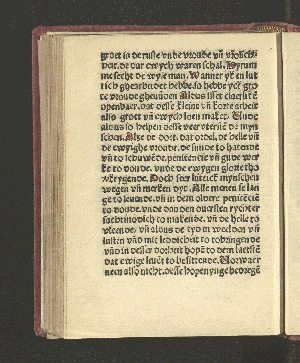 groet in de ruste vnde vroude vñ vrolich
dat. de dar ewych waren schal. Hyrum
me secht de wyse man. Wanner yk en lut
tich ghearbeidet hebbe. so hebbe yck gro
te vroude gheuunden Aldus isset clarlikē
openbaer. dat desse kleine vñ korte arbeit
also groet vñ ewych loen maket Vnde
aldus so helpen desse veer vterste dē myn
schen. Alze de doet. dat ordel. de helle vñ
de ewighe vroude. de sunde to hatende
vñ to schuwēde. penitencie vñ gude wer
ke to donde. vnde de ewygen glorie tho
vkrygende. Doch seer luttick mynschen
wegen vñ merken dyt. Alle menen se lan
ge to leuende. vñ in dem oldere penitēciē
to donde. vnde dan den ouersten rychter
sachtmodich to makende. vñ de helle to
vleende. vñ aldus de tyd in weelden vñ
lusten vñ mit ledicheit to tobringende
vñ in desser dorheit hopē to dem laetstē
dat ewige leuēt to besittende. Vorwaer
neen also nicht. desse hopenynge bedregē